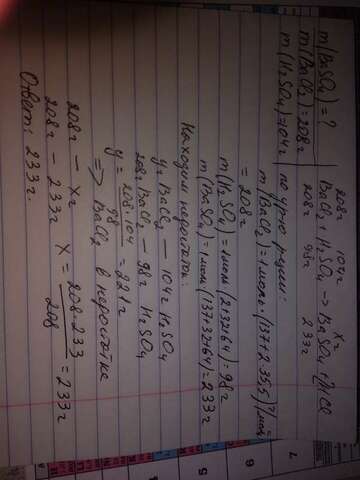 m(BaSO₄) = ?
m(BaCl₂) = 208г
m(H₂SO₄) = 104г
208г 104г xг
BaCl₂ + H₂SO₄ → BaSO₄ + 2HCl
208г 98г 233г
по ур-ю реакции:
m(BaCl₂) = 1моль · (137+2·35,5) г/моль
= 208г
m(H₂SO₄) = 1моль (2+32+64) = 98г
m(BaSO₄) = 1моль (137+32+64) = 233г
Находим недостаток:
yг BaCl₂ — 104г H₂SO₄
208г BaCl₂ — 98г H₂SO₄
y = 208·104 / 98 = 221г
=> BaCl₂ в недостатке
208г — xг
208г — 233г x = 208·233 / 208 = 233г
Ответ: 233г.
7
6
5
4